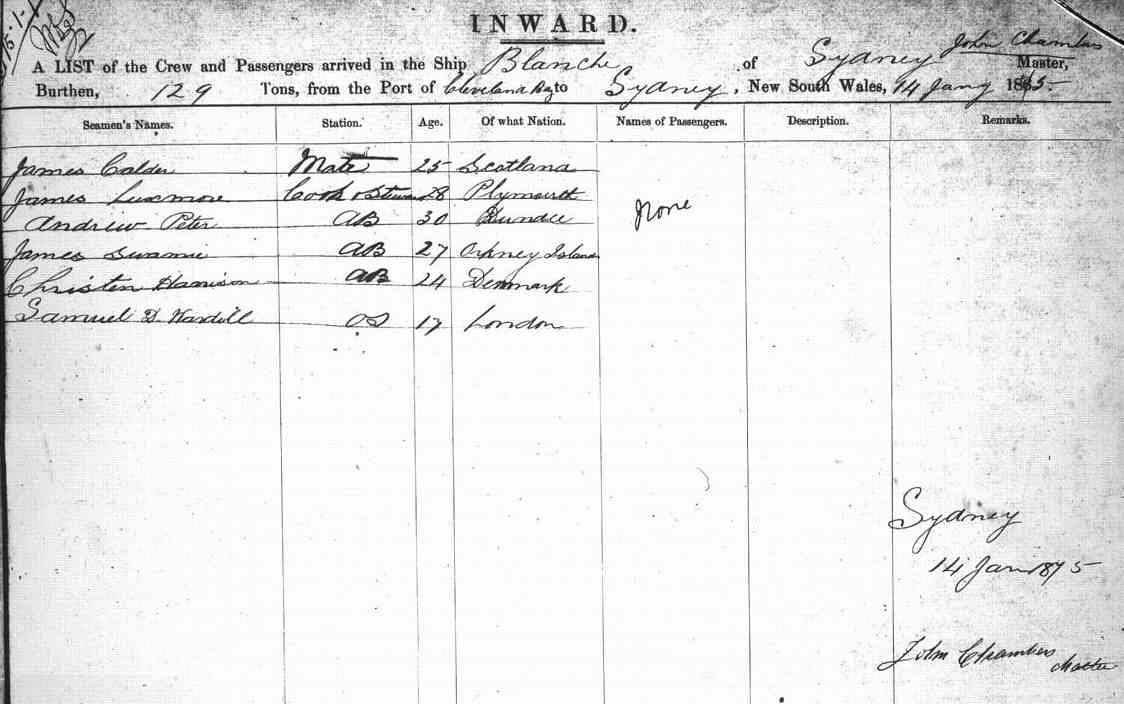 INWARD.
John Chambers
A LIST of the Crew and Passengers arrived in the Ship Blanche of Sydney Master,
Burthen, 129 Tons, from the Port of Cleveland Bay to Sydney, New South Wales, 14 Jany 1875.
Seamen's Names. Station. Age. Of what Nation. Names of Passengers. Description. Remarks.
James Calder Mate 25 Scotland
James Luxmore Cook & Steward 28 Plymouth
None
Andrew Peter AB 30 Dundee
James Swannie AB 27 Orkney Island
Christen Hanison AB 24 Denmark
Samuel D. Wardill OS 17 London
Sydney
14 Jan 1875
John Chambers
Master